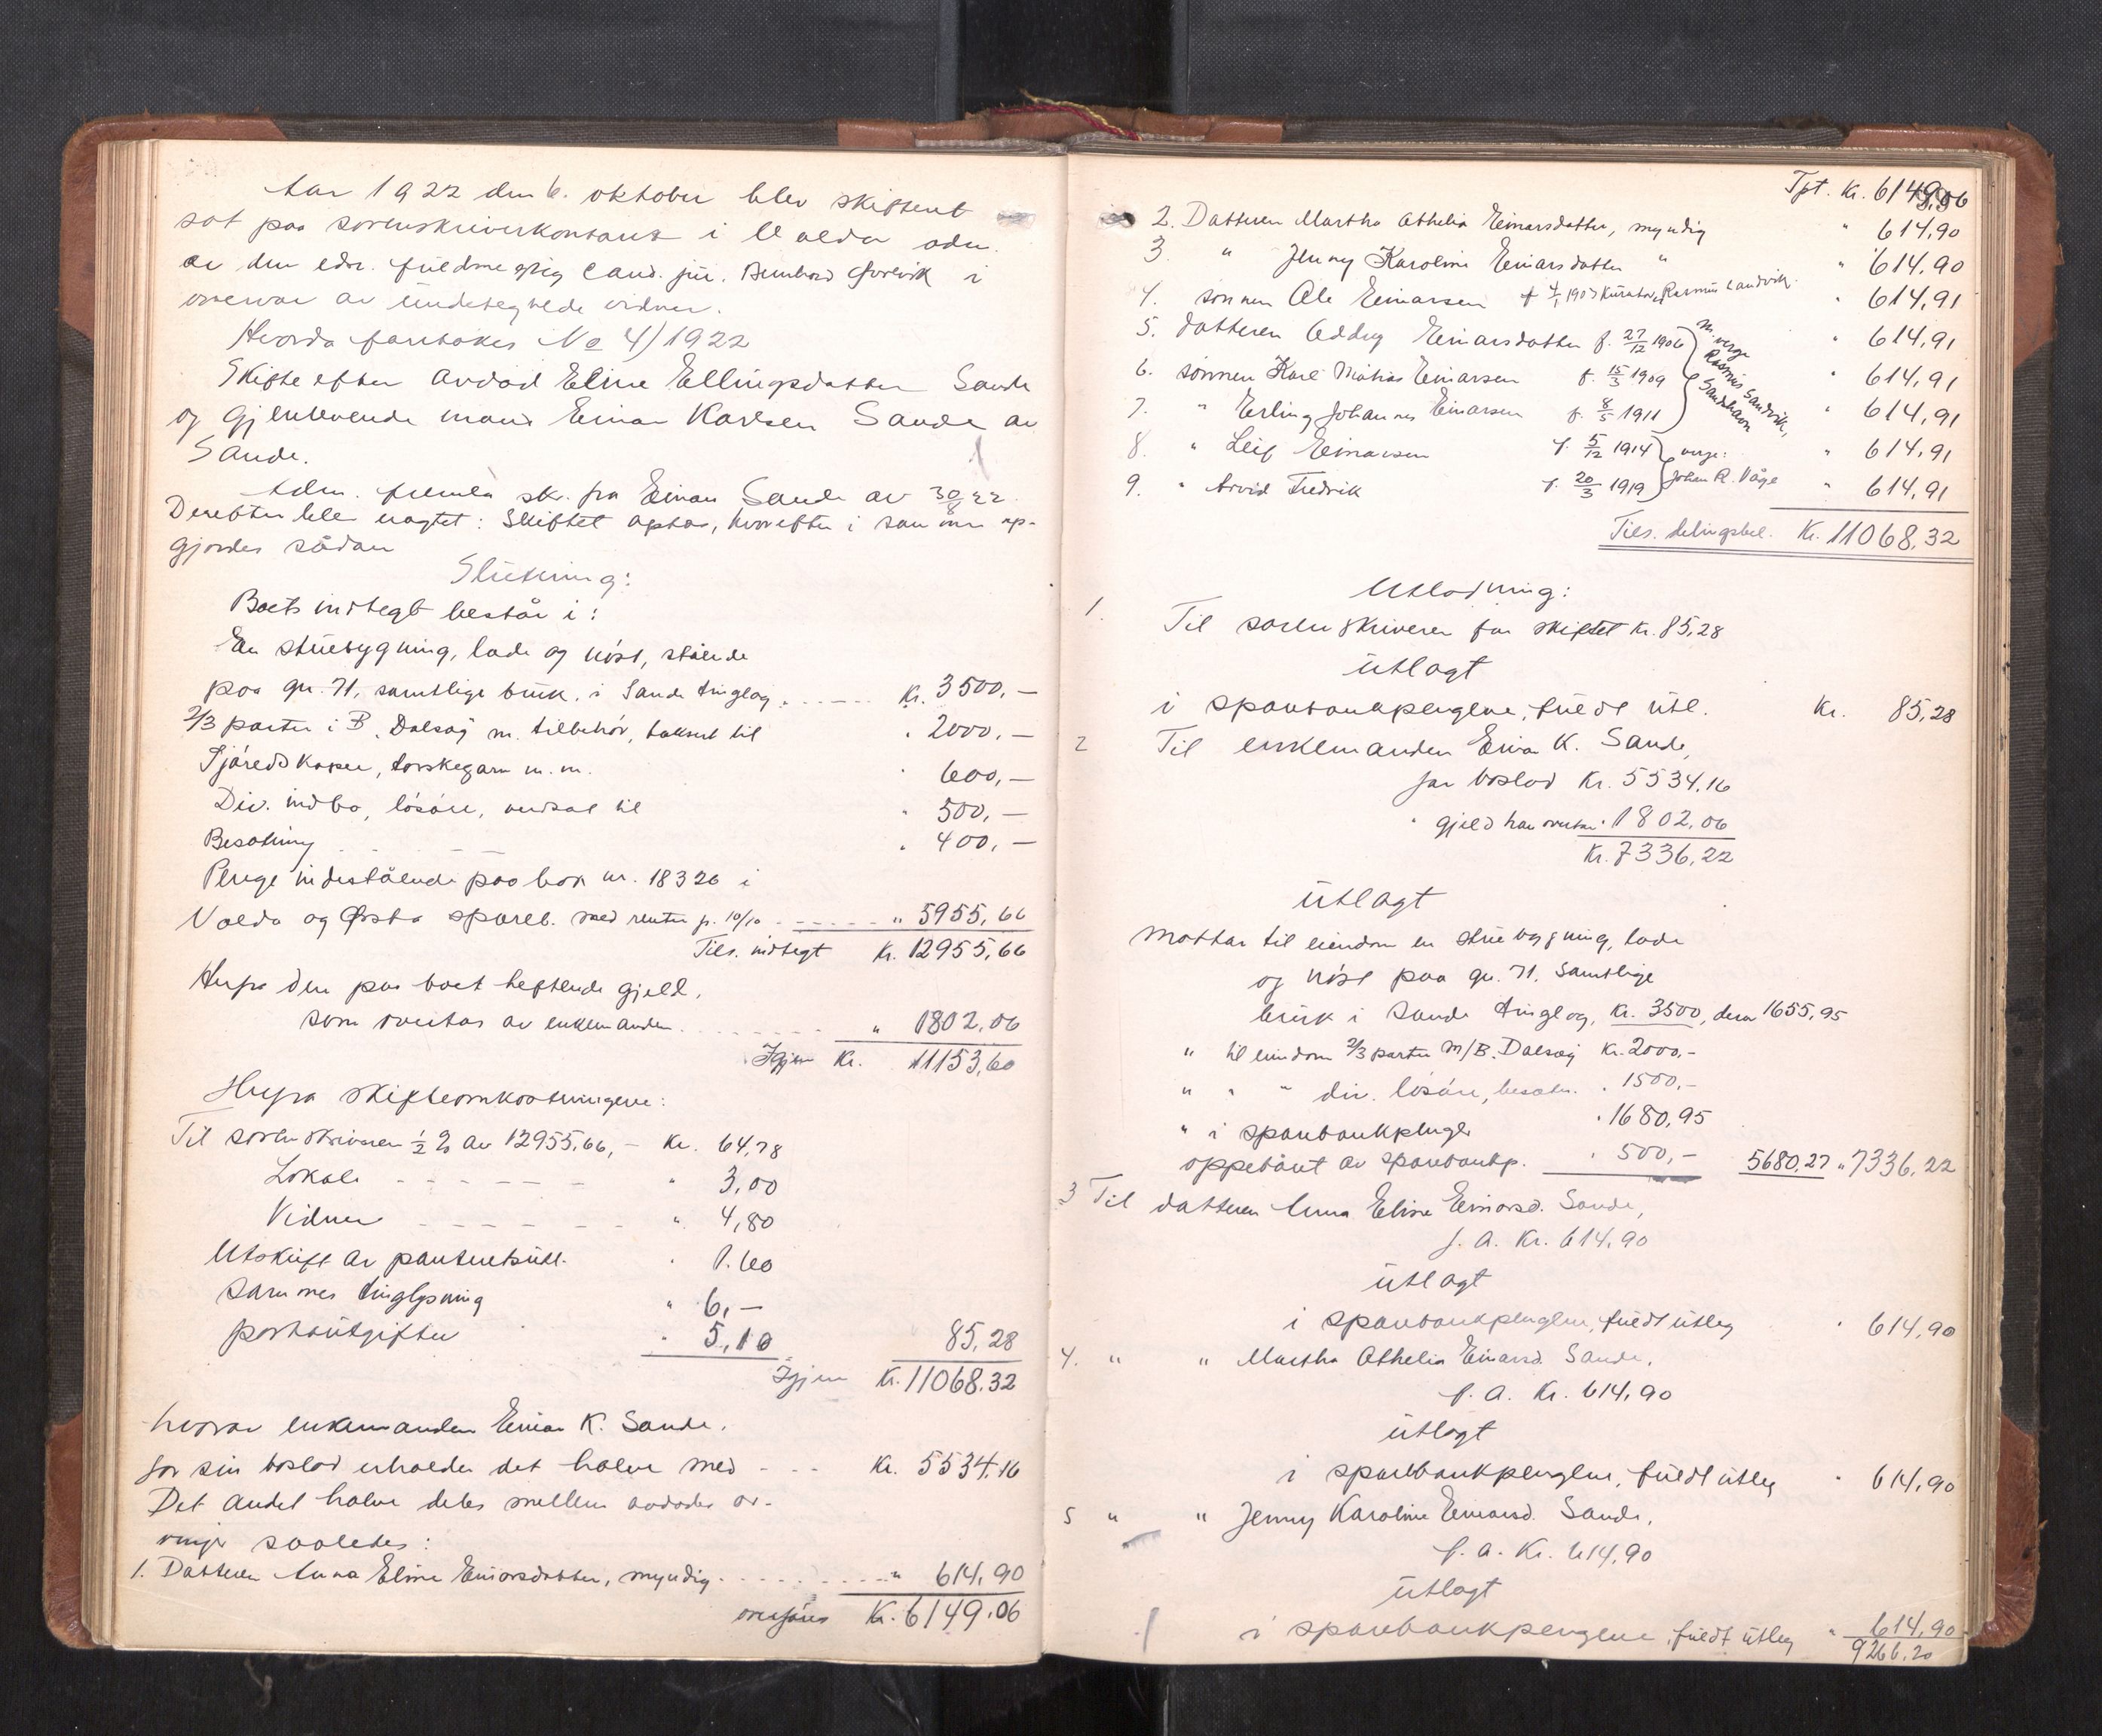 Aar 1922 den 6. oktober blev skifteret
sat paa sorenskriverkontoret i Volda adm.
av den edsv. fuldmegtig cand. jur. Bernhard i
overvær av undertegnede vidner.
Hvorda foretokes No 4/1922
Skifte efter avdød Eline Ellingsdatter Sande
og gjenlevende mand Einar Karlsen Sande av
Sande.
Adm. fremla skr. fra Einar Sande av 30/8 22.
Derefter blev vagtet: Skiftet optas, hvorefter i samme op-
gjordes sådan
Slutning:
Boets indtegt består i:
En stuebygning, lade og nöst, stående
paa gr. 71, samtlige bruk, i Sande tinglag. Kr. 3500,–
2/3 parter i B. Dalsøj m. tilbehör, taksert til " 2000,–
Fjäredskaper, torskegarn m.m. " 600,–
Div. indbo, lösöre, verdsat til " 500,–
Besætning " 400,–
Penge indestående paa bok nr. 18326 i
Volda og Ørsta spareb. med renter p. 10/10 " 5955,66
Tils. indtegt Kr. 12955,66
Herfra den paa boet heftende gjeld,
som overtas av enkemanden " 1802,06
Igjen Kr. 11153,60
Herfra skifteomkostningene:
Til sorenskriveren ½ % av 12955,66,– Kr. 64,78
Lokale " 3,00
Vidner " 4,80
Utskrift av panteretsutl. " 1.60
Sammes tinglysning " 6,–
portoutgifter " 5,10 85,28
Igjen Kr. 11068,32
hvorav enkemanden Einar K. Sande,
for sin boslod erholder det halve med Kr. 5534,16
Det andet halve deles mellem avdødes ar-
vinger saaledes:
1. Datteren Anna Eline Einarsdatter, myndig " 614,90
overføres Kr. 6149,06
Tpt. Kr. 6149,06
2. Datteren Martha Athelia Einarsdatter, myndig " 614,90
3. " Jenny Karoline Einarsdatter " " 614,90
4. sønnen Ole Einarsen f 4/1 1903 Kurator, Rasmus Sandvik. " 614,91
5. datteren Oddny Einarsdatter f. 27/12 1906 " 614,91
6. sønnen Karl Mathias Einarsen f. 15/3 1909 " 614,91
7. " Erling Johannes Einarsen f. 8/5 1911 " 614,91
m verge Rasmus Sandvik, Sandshavn
8. " Leif Einarsen f. 5/12 1914 verge: " 614,91
9. " Arvid Fredrik f. 20/3 1919 Johan R. Våge " 614,91
Tils. delingsbel. Kr. 11068,32
Utlodning:
1. Til sorenskriveren for skiftet Kr. 85,28
utlagt
i sparebankpengene, fuldt utl. Kr. 85,28
2 Til enkemanden Einar K. Sande,
for boslod Kr. 5534,16
" gjeld han overtar " 1802,06
Kr. 7336,22
utlagt
Mottar til eiendom en stuebygning, lade
og nöst paa gr. 71, samtlige
bruk i Sande tinglag, Kr. 3500, derav 1655,95
" til eiendom 2/3 parter M/B. Dalsøj Kr. 2000,–
" " " div. lösöre, besætn. " 1500,–
" i sparebankpenger " 1680,95
oppebåret av sparebankp. " 500,– 5680,27 " 7336,22
3 Til datteren Anna Eline Einarsd. Sande,
f. a. Kr. 614,90
utlagt
i sparebankpengene, fuldt utleg " 614,90
4. " " Martha Athelia Einarsd. Sande,
f. a. Kr. 614,90
utlagt
i sparebankpengene, fuldt utleg " 614,90
5 " " Jenny Karoline Einarsd. Sande,
f. a. Kr. 614,90
utlagt
i sparebankpengene, fuldt utleg " 614,90
9266,20